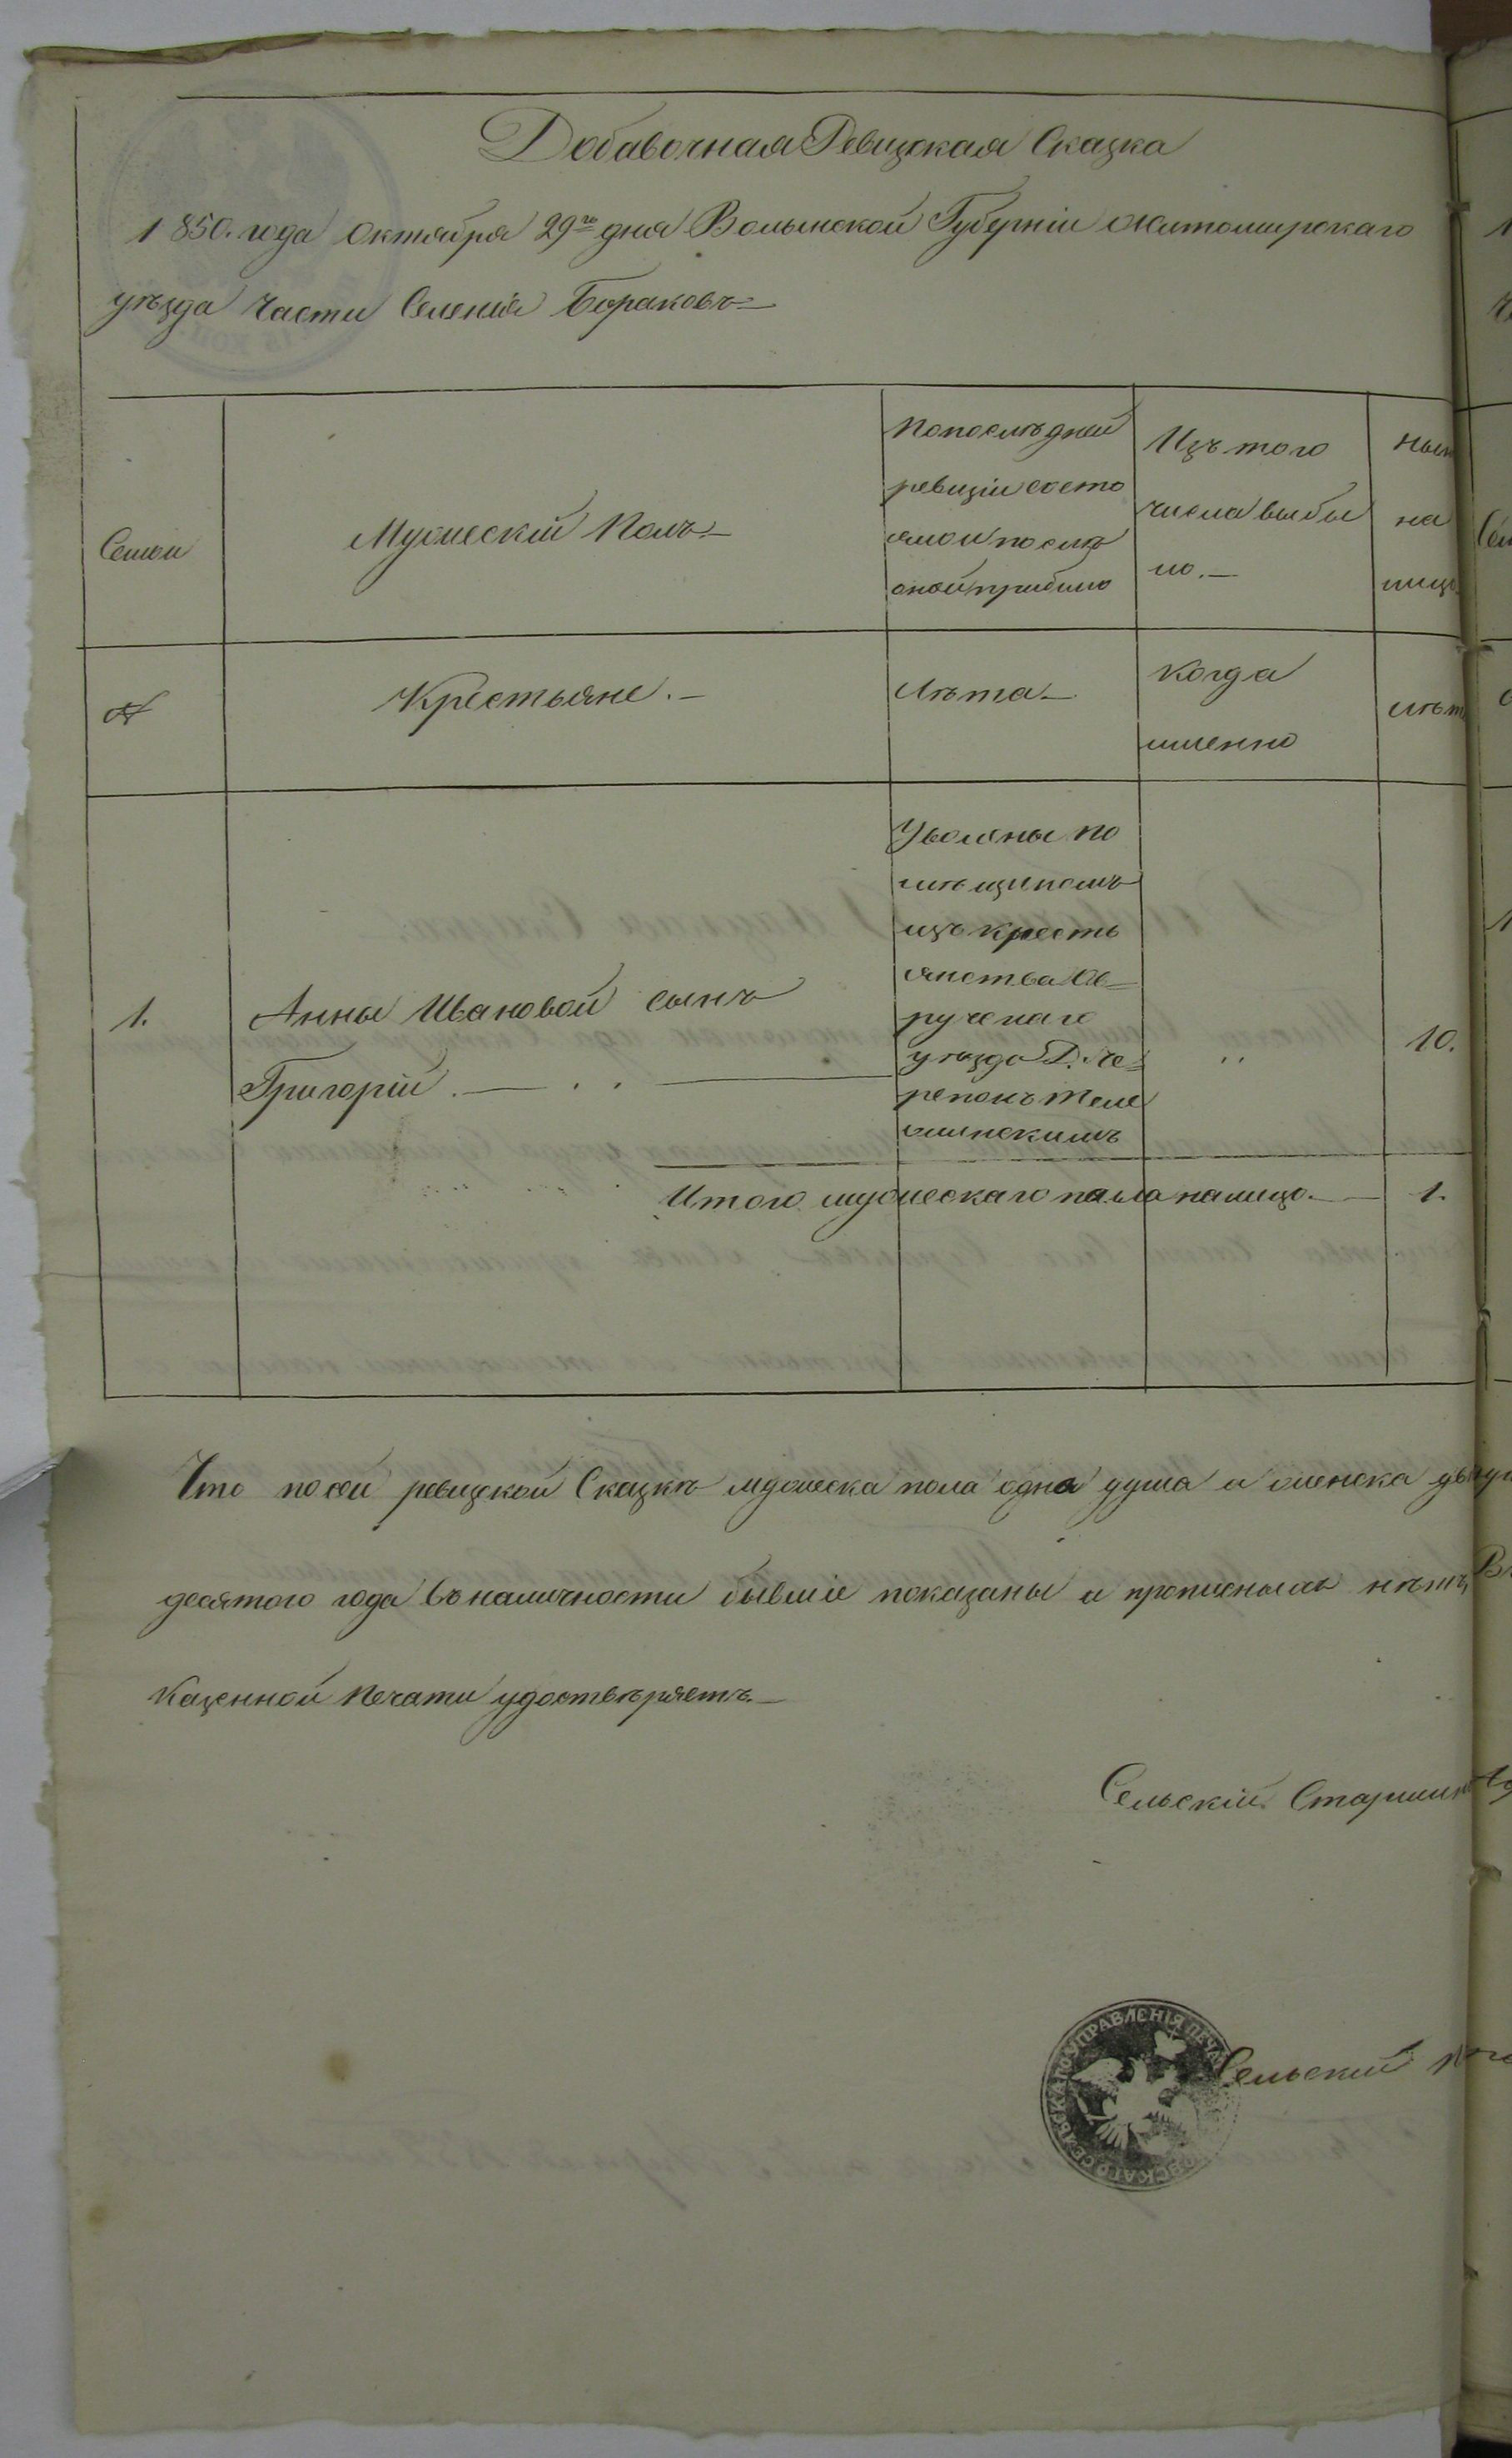 Добавочная Ревизская Сказка
1850. года Октября 29го дня Волынской Губерніи Житомирскаго
уѣзда части Селенія Бораковъ
Семьи
Мужескій Полъ
По послѣдней
ревизіи состо
яло и послѣ
оной прибыло
Изъ того
числа выбы
ло.
Нын
на
лицо
№
Крестьяне.
Лѣта
Когда
именно
лѣт
1.
Анны Ивановой сынъ
Григорій
Уволены по
мѣщикомъ
изъ кресть
янства Ов
ручскаго
уѣзда
10.
Итого мужескаго пола налицо.
1.
Что по сей ревизской Сказкѣ мужеска пола одна душа и женска
десятого года въ наличности бывшіе показаны и прописныхъ нѣтъ
Казенной Печати удостовѣряетъ.
Сельскій Старшина
Сельскій
СЕЛЬСКАГО УПРАВЛЕНІЯ ПЕЧА